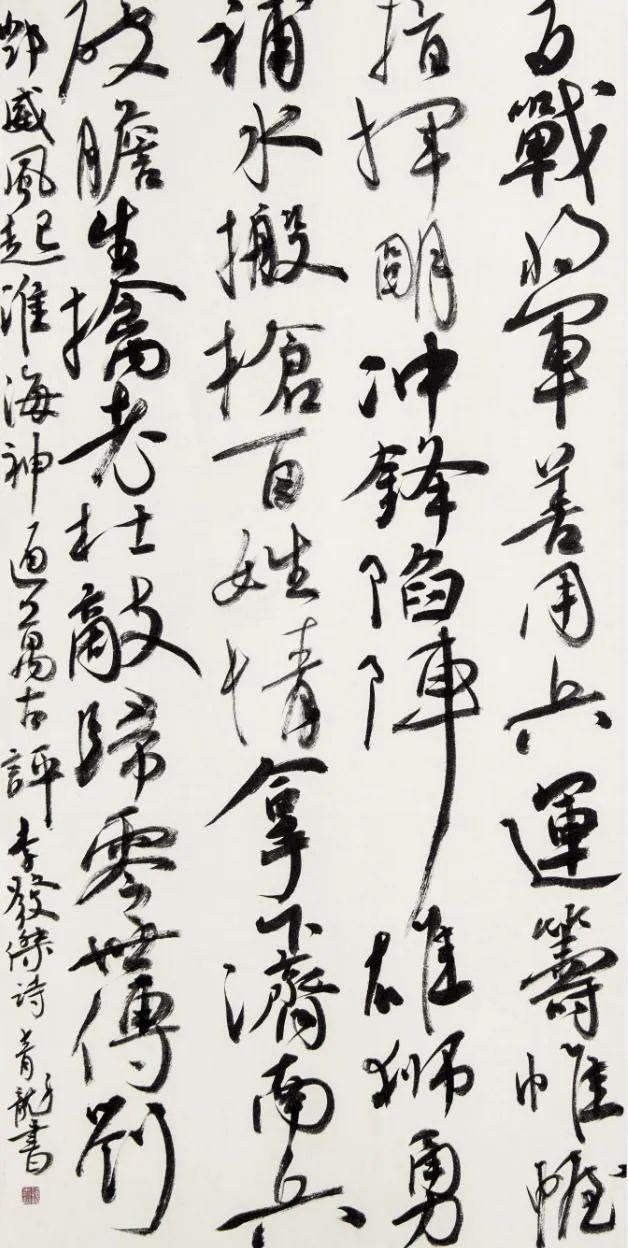 百戰將軍善用兵運籌帷幄
指揮明冲鋒陷陣雄獅勇
補水搬槍百姓情拿下濟南兵
破膽生擒老杜敵歸零世傳劉
鄧威風起淮海神通萬古評 李發傑詩 青龍書